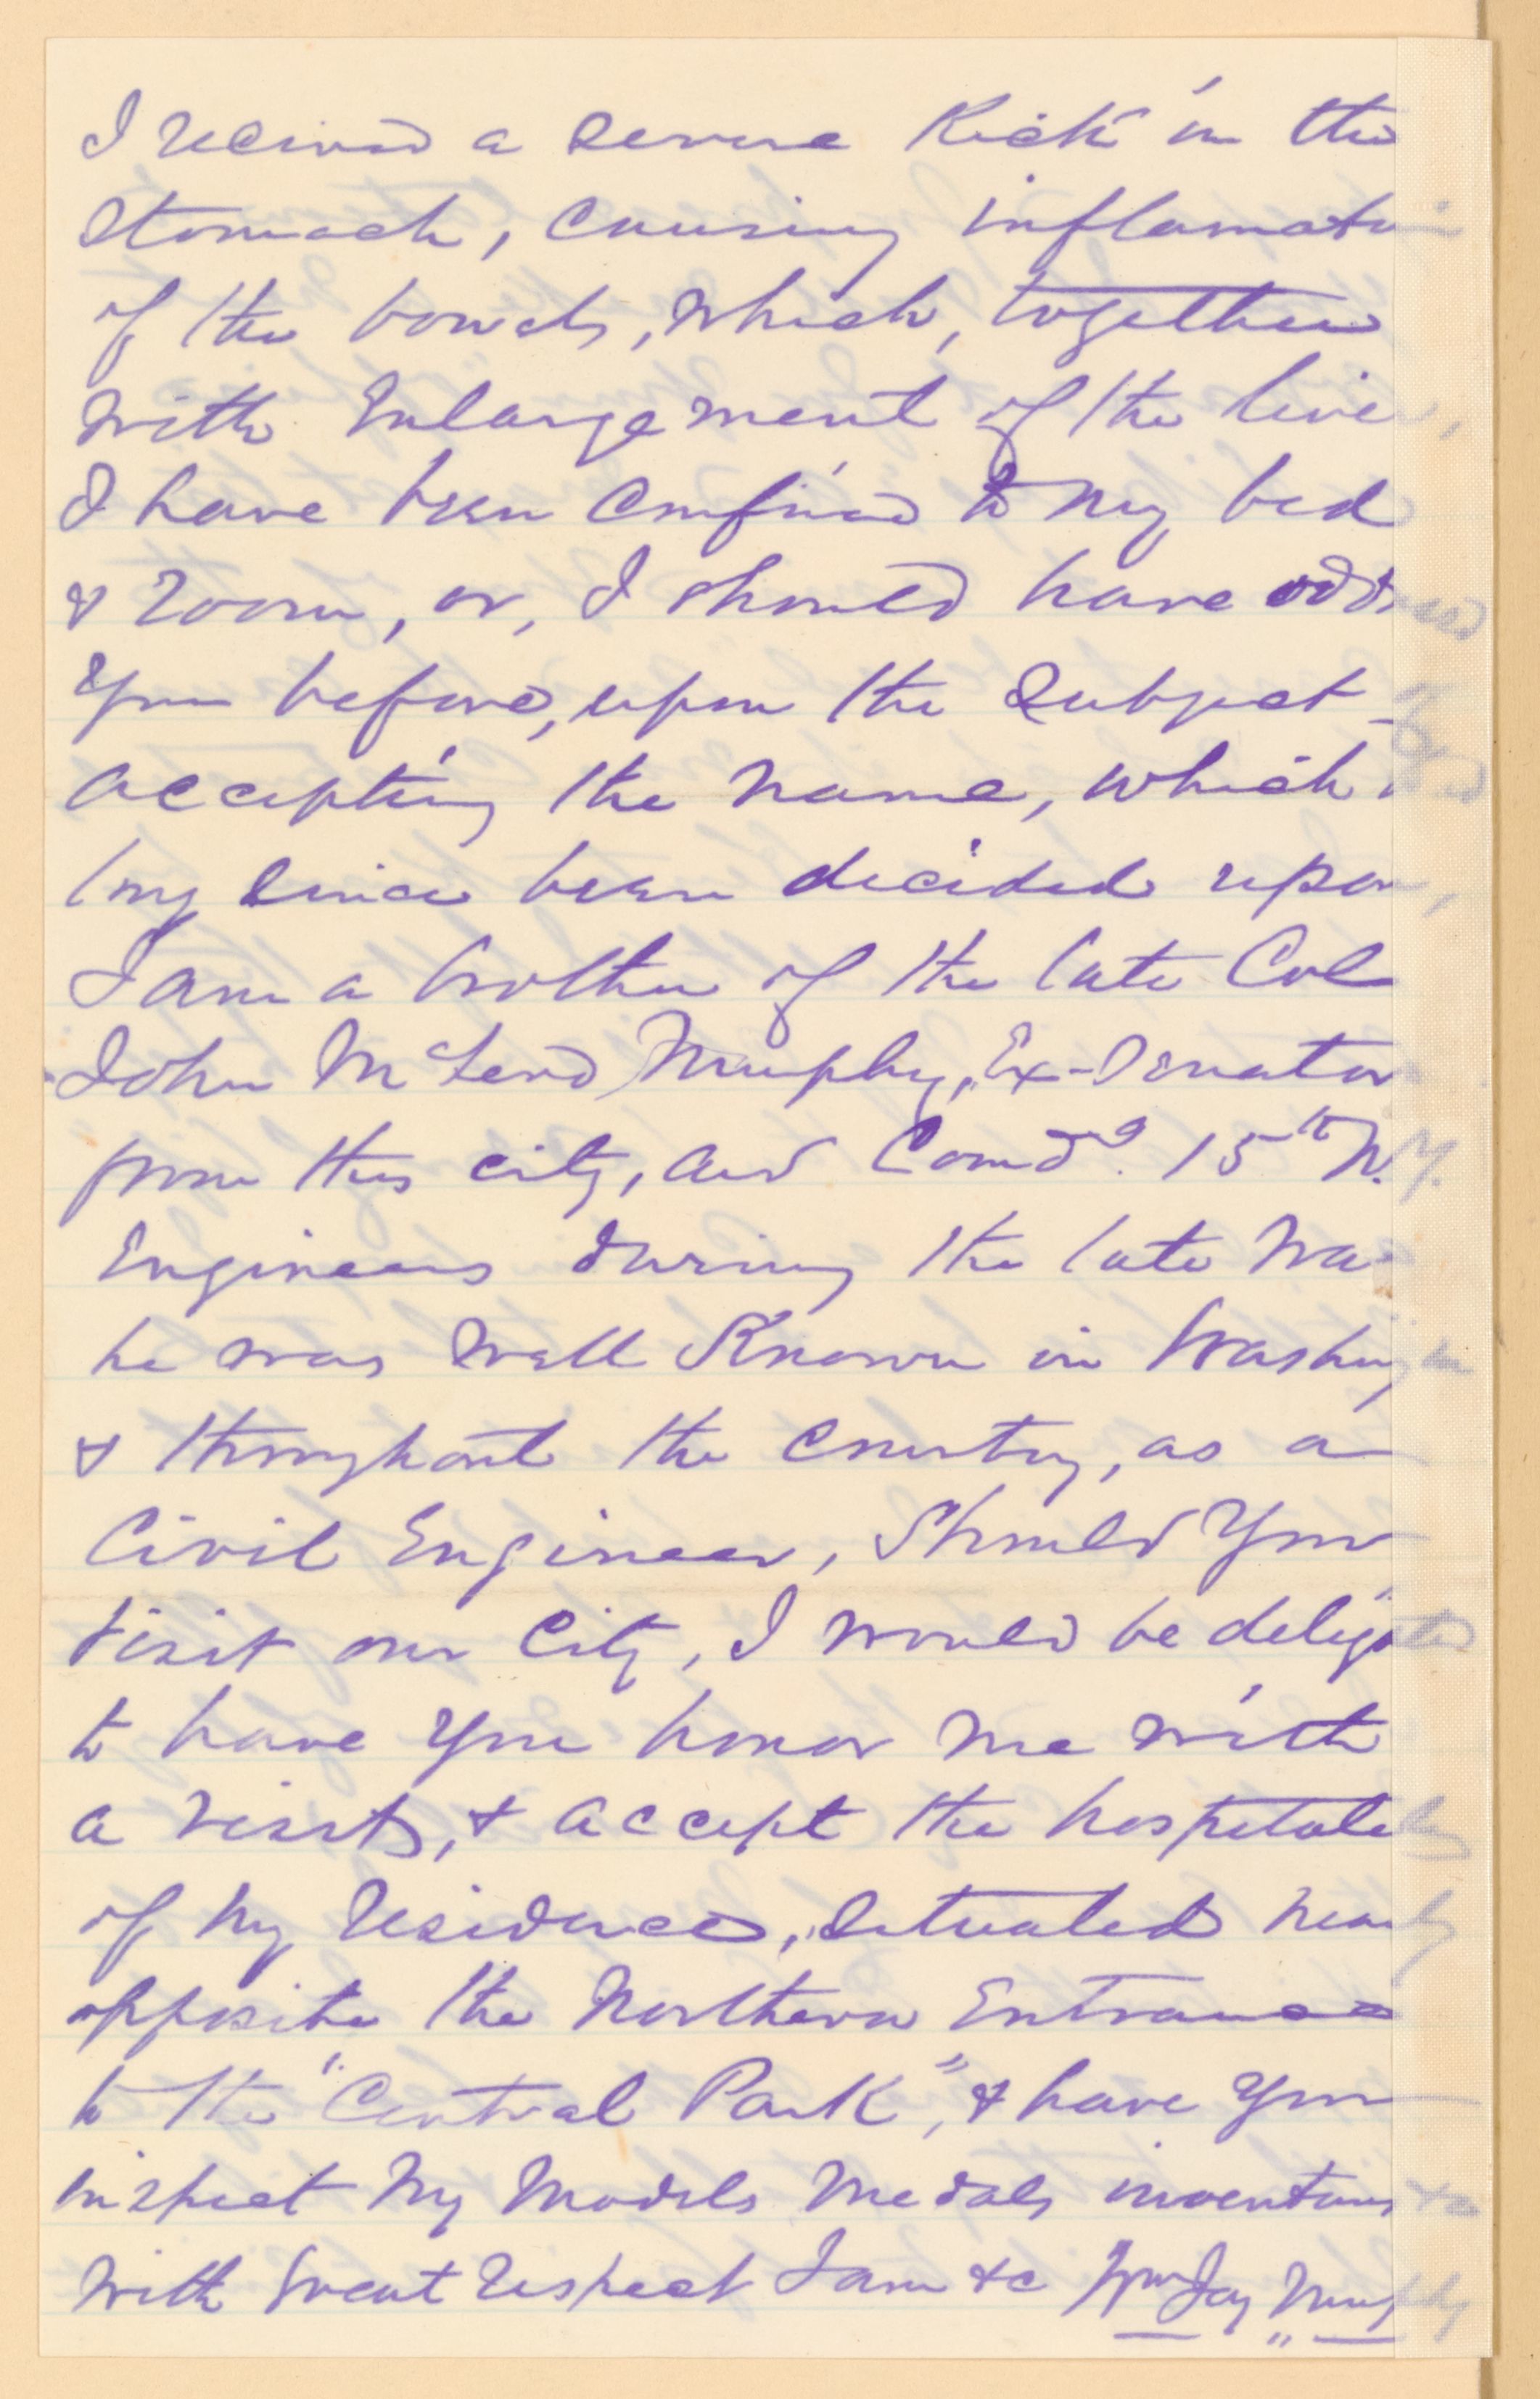 I received a severe Kick in the
stomach, causing inflamation
of the bowels, which, together
with Enlargement of the liver,
I have been confined to my bed
& room, or, I should have addressed
You before, upon the Subject
accepting the name, which
long since been decided upon,
I am a brother of the late Col
John McLeod Murphy, Ex-Senator
from this city, and Comdg. 15th N.Y.
Engineers during the late War
he was well Known in Washington
& throughout the country, as a
Civil Engineer, Should You
visit our City, I would be delighted
to have You honor me with
a visit, & accept the hospitality
of my residence, situated nearly
opposite the Northern Entrance
to the "Central Park", & have You
inspect My Models Medals inventions &c
With Great respect I am &c Wm Jay Murphy